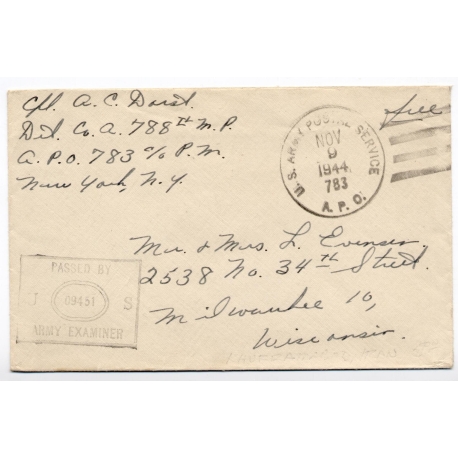 Cpl. A. C. Dorst.
Det. Co. A. 788th M.P.
A.P.O. 783 c/o P.M.
New York, N.Y.
free
U.S. ARMY POSTAL SERVICE
NOV
9
1944
783
A.P.O.
Mr. & Mrs. L. Evensen
2538 No. 34th Street.
Milwaukee 10,
Wisconsin.
PASSED BY
U 09451 S
ARMY EXAMINER